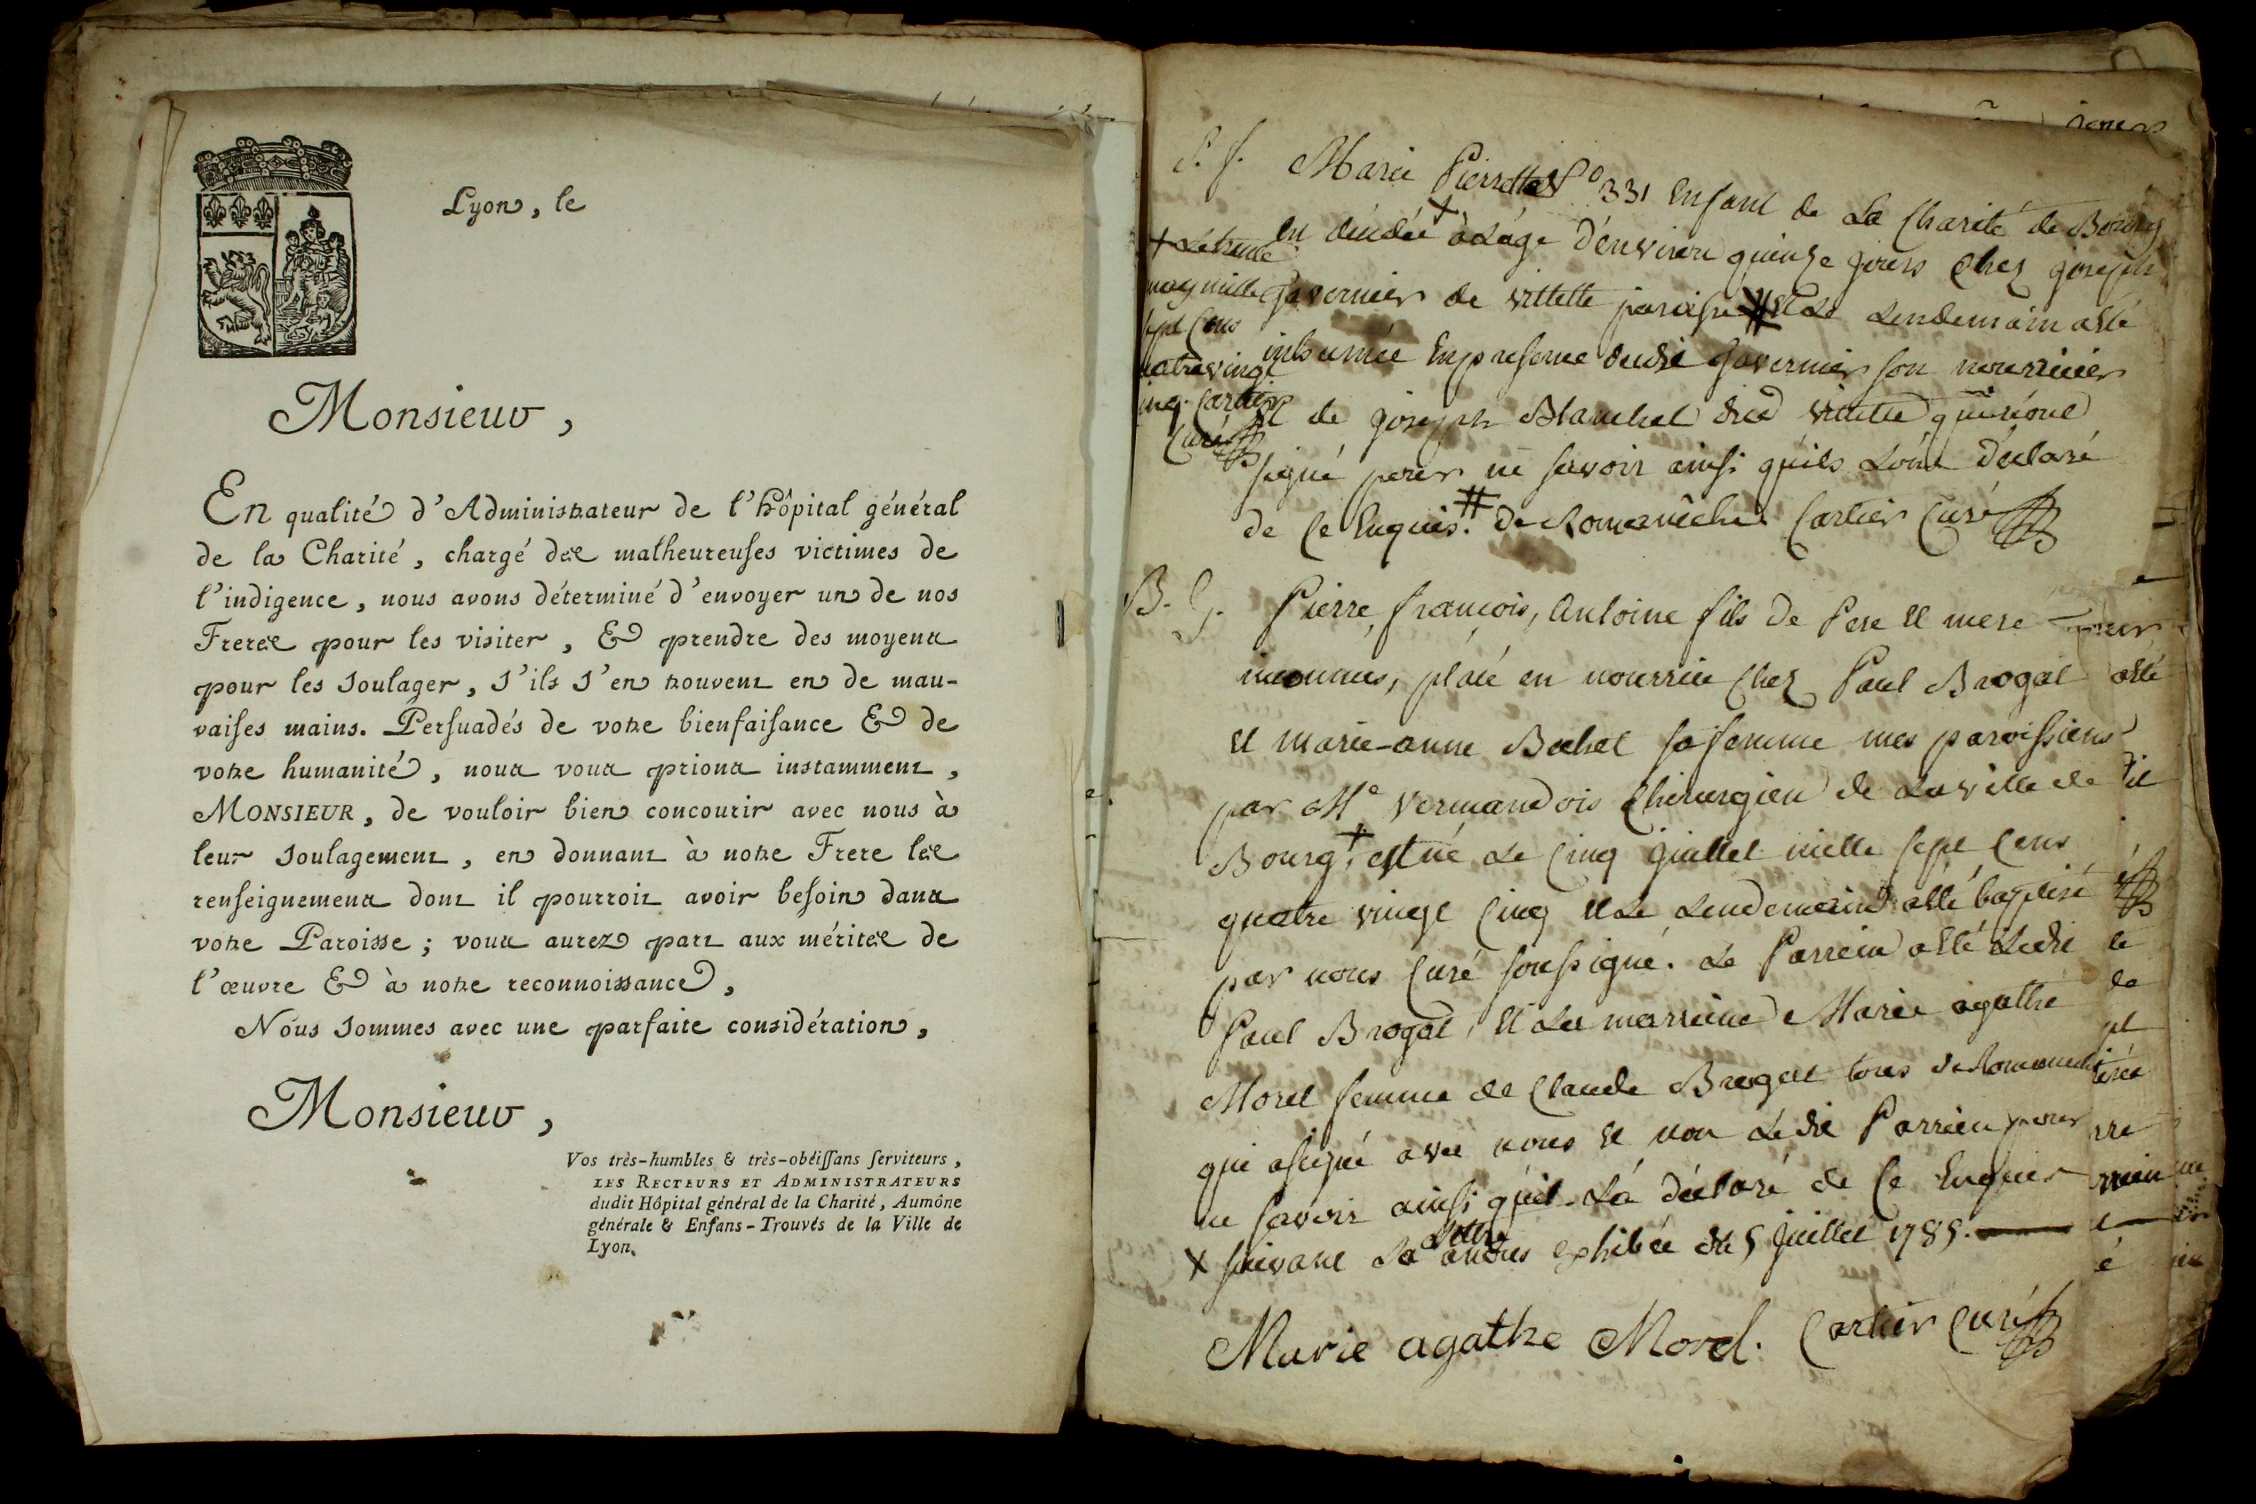 Lyon, le
Monsieur,
En qualité d'Administrateur de l'Hôpital général
de la Charité, chargé des malheureuses victimes de
l'indigence, nous avons déterminé d'envoyer un de nos
Freres pour les visiter, & prendre des moyens
pour les soulager, s'ils s'en trouvent en de mau-
vaises mains. Persuadés de votre bienfaisance & de
votre humanité, nous vous prions instamment,
MONSIEUR, de vouloir bien concourir avec nous à
leur soulagement, en donnant à notre Frere les
renseignements dont il pourroit avoir besoin dans
votre Paroisse ; vous aurez part aux mérites de
l'œuvre & à notre reconnoissance,
Nous sommes avec une parfaite considération,
Monsieur,
Vos très-humbles & très-obéissans serviteurs,
LES RECTEURS ET ADMINISTRATEURS
dudit Hôpital général de la Charité, Aumône
générale & Enfans-Trouvés de la Ville de
Lyon.
Marie Pierrette No 331 Enfant de La Charité de Bourg
est décédée + à L'âge d'environ quinze jours Chez joseph
gavernier de vittette paroisse # et Le Lendemain a été
inhumée En presence dudit gavernier son nourricier
et de joseph Blanchet dud vittette qui n'ont
signé pour ne savoir ainsi qu'ils L'ont déclaré
de Ce Enquis. # de Romanêche Cartier Curé
+ Le trente
may mille
sept Cens
quatre vingt
cinq. Cartier
Curé
B. G. Pierre, françois, Antoine fils de Pere et mere
inconnus, placé en nourrice Chez Paul Brogat
et marie-anne Bochet sa femme mes paroissiens
par Me Vermandois Chirurgien de La ville de
Bourg +, est né Le Cinq juillet mille sept Cens
quatre vingt Cinq et Le Lendemain a été baptisé
par nous Curé soussigné. Le Parrein a été Ledit
Paul Brogat, et La marreine Marie agathe
Morel femme de Claude Brogat tous de Romaneche
qui a signé avec nous et non Ledit Parrein pour
ne savoir ainsi qu'il L'a déclaré de Ce Enquis
+ suivant La Lettre a nous exhibée du 5 juillet 1785.
Marie agathe Morel. Cartier Curé